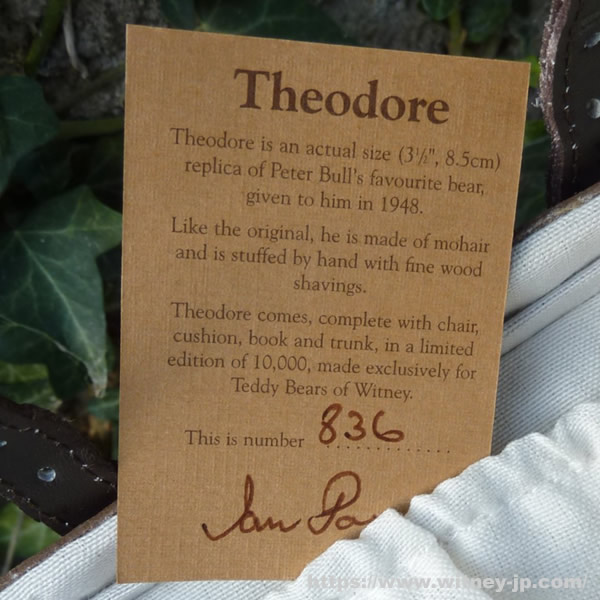 Theodore
Theodore is an actual size (3½", 8.5cm)
replica of Peter Bull's favourite bear,
given to him in 1948.
Like the original, he is made of mohair
and is stuffed by hand with fine wood
shavings.
Theodore comes, complete with chair,
cushion, book and trunk, in a limited
edition of 10,000, made exclusively for
Teddy Bears of Witney.
This is number 836
Ian
https://www.witney-jp.com/